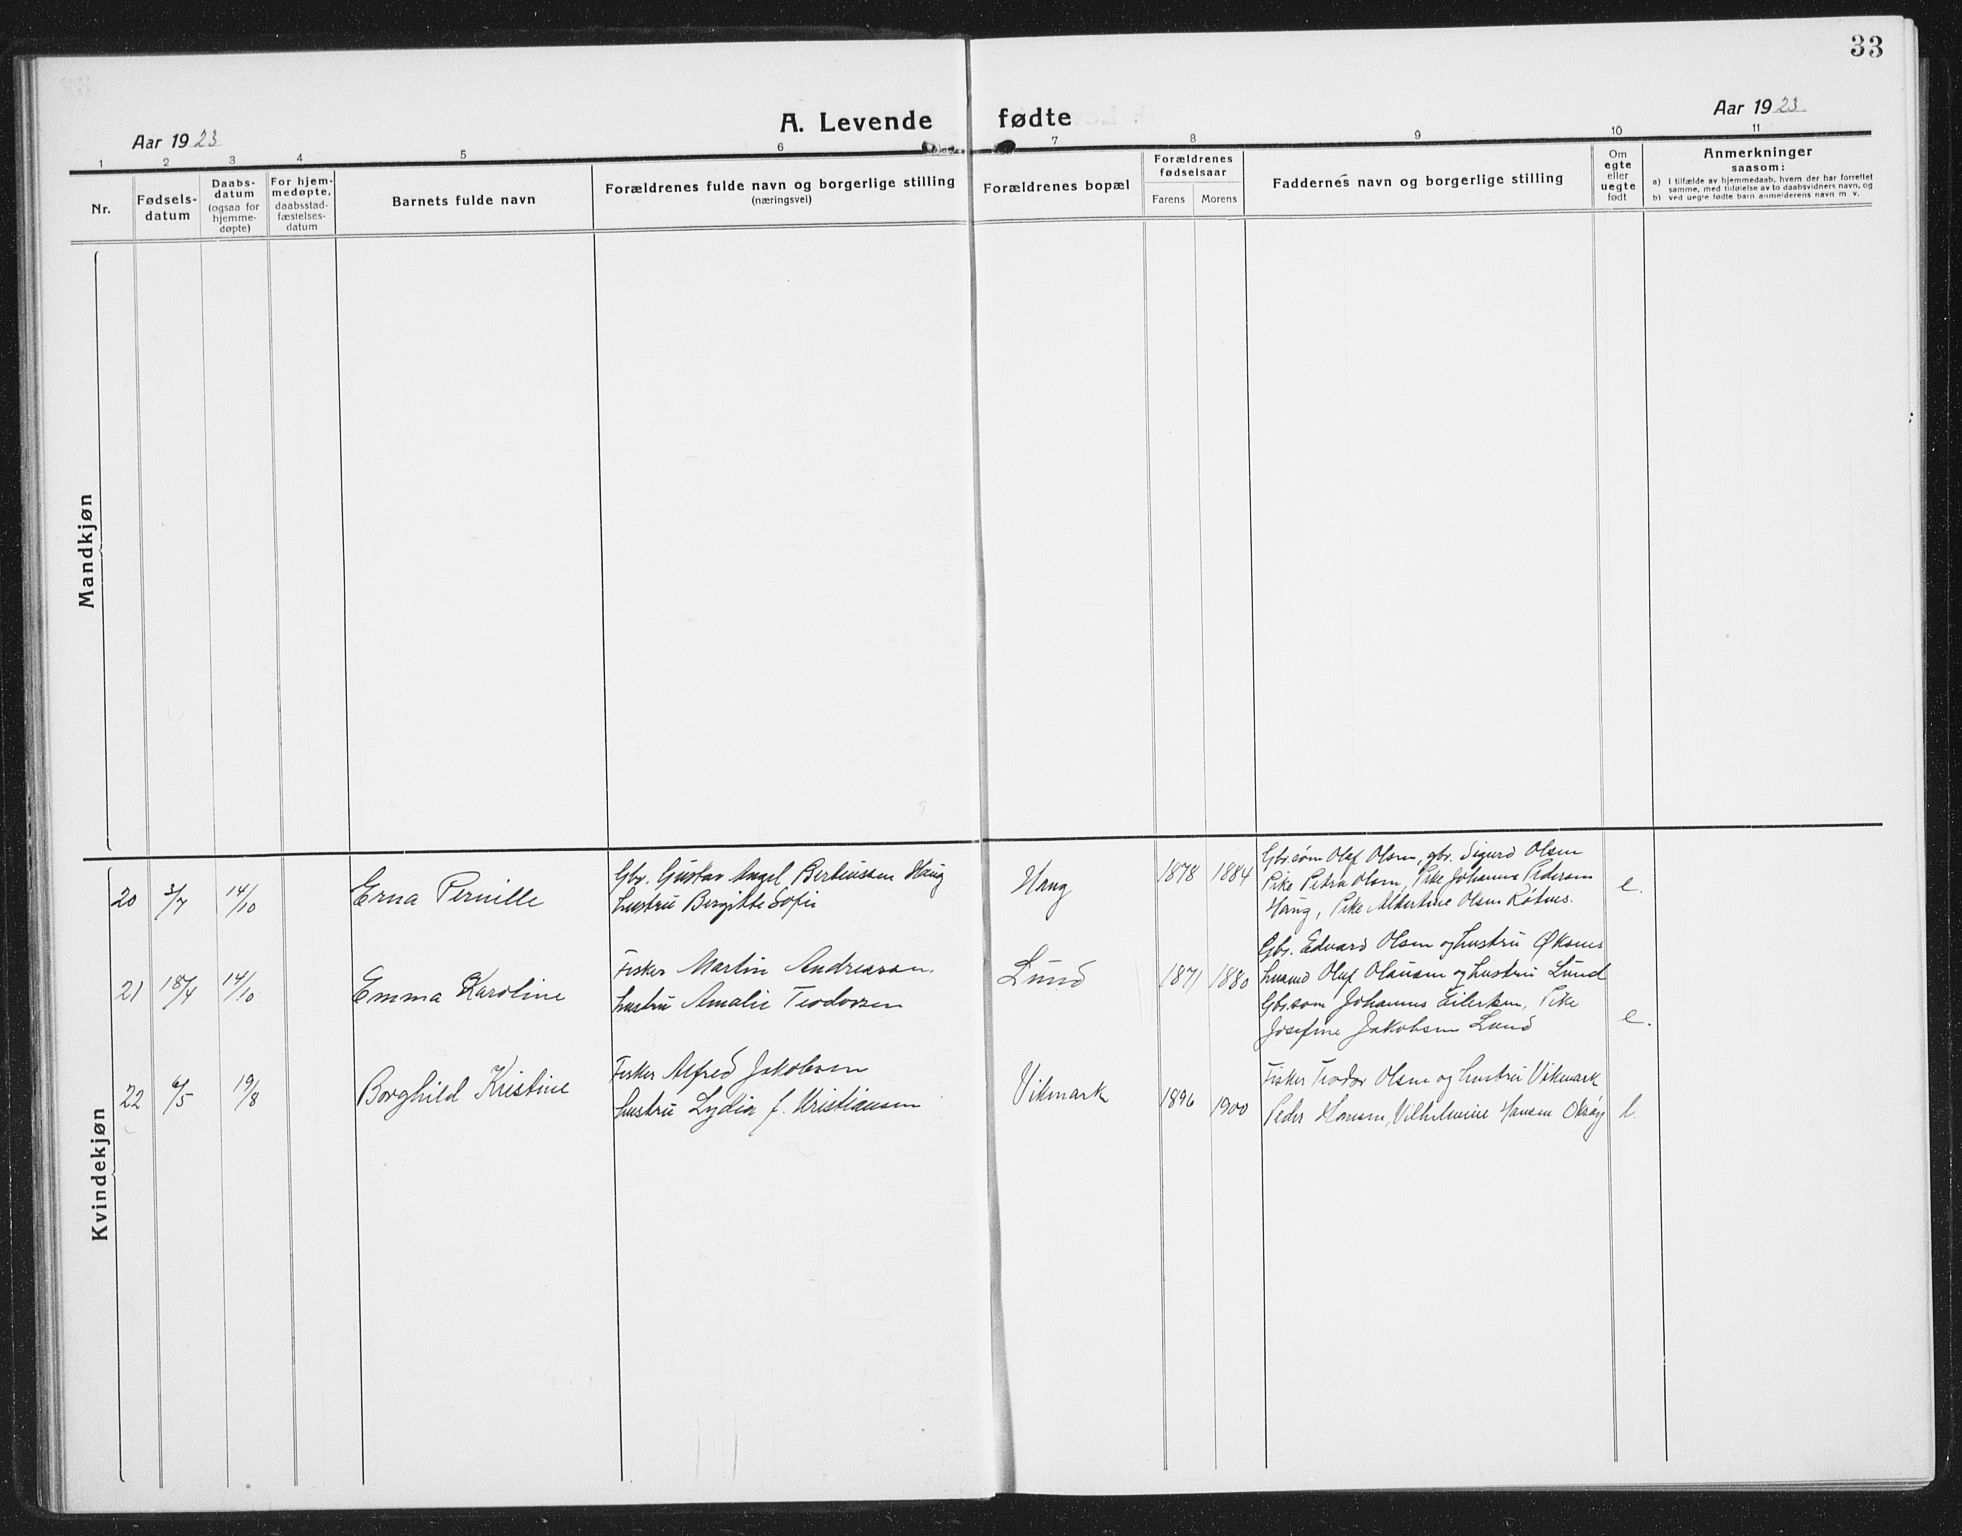 33
A. Levende fødte
Aar 1923
Aar 1923
1 2 3 4 5 6 7 8 9 10 11
Nr.
Fødsels-
datum
Daabs-
datum
(ogsaa for
hjemme-
døpte)
For hjem-
medøpte,
daabsstad-
fæstelses-
datum
Barnets fulde navn
Forældrenes fulde navn og borgerlige stilling
(næringsvei)
Forældrenes bopæl
Forældrenes
fødselsaar
Farens Morens
Faddernes navn og borgerlige stilling
Om
egte
eller
uegte
født
Anmerkninger
saasom:
a) i tilfælde av hjemmedaab, hvem der har forrettet
samme, med tilføielse av to daabsvidners navn, og
b) ved uegte fødte barn anmelderens navn m. v.
Mandkjøn
Kvindekjøn
20 3/7 14/10 Erna Pernille
Gbr. Gustav Angel Bertinssen Haug
hustru Bergitte Sofie
Haug 1878 1884
Gbr.søn Olaf Olsen, gbr. Sigurd Olsen
Pike Petra Olsen, Pike Johanna Pedersen
Haug, Pike Albertine Olsen
e.
21 18/4 14/10 Emma Karoline
Fisker Martin Andreassen,
hustru Amalie Teodorsen
Lund 1871 1880
Gbr. Edvard Olsen og hustru Øksnes
Oluf Olausen og hustru Lund
Gbr.søn Johannes Eilertsen, Pike
Josefine Jakobsen Lund
e.
22 6/5 19/8 Borghild Kristine
Fisker Alfred Jakobsen
hustru Lydia f. Kristiansen
Vikmark 1896 1900
Fisker Teodor Olsen og hustru Vikmark
Peder Hansen, Vilhelmine Hansen
e.